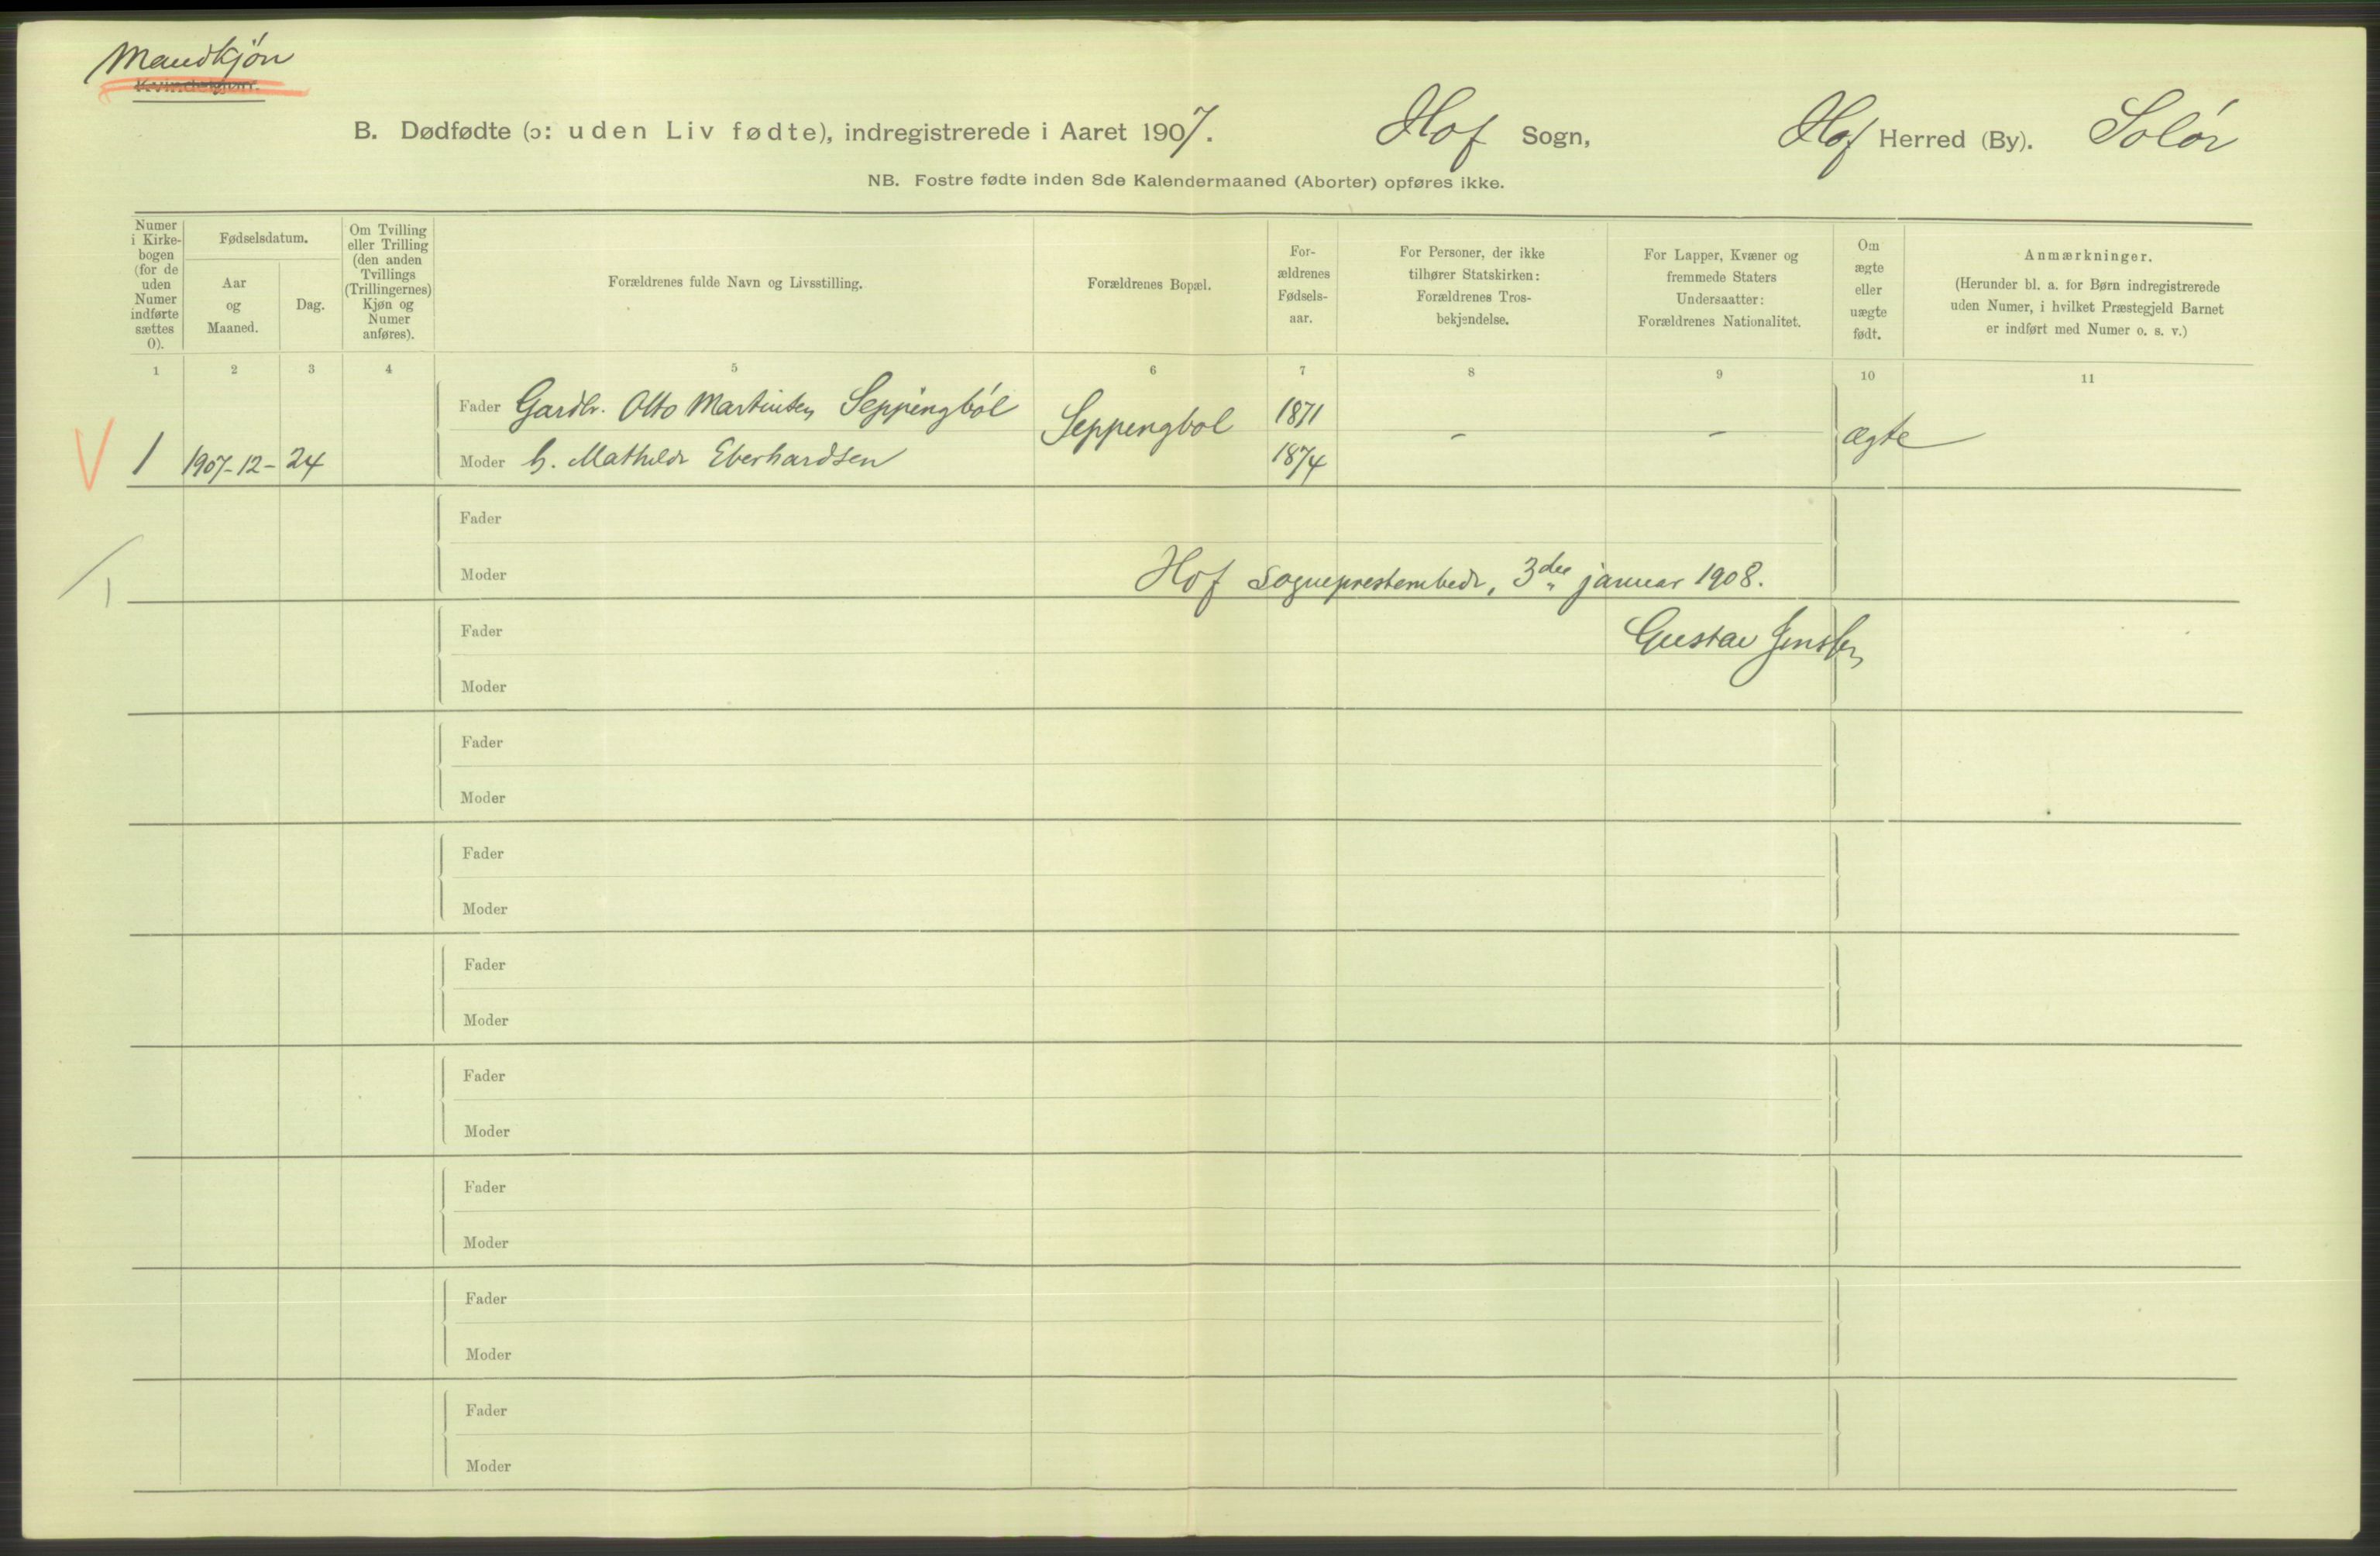 Mandkjøn
Kvindekjøn.
B. Dødfødte (ɔ: uden Liv fødte), indregistrerede i Aaret 1907. Hof Sogn, Hof Herred (By). Solør
NB. Fostre fødte inden 8de Kalendermaaned (Aborter) opføres ikke.
Numer
i Kirke-
bogen
(for de
uden
Numer
indførte
sættes
0).
Fødselsdatum.
Aar
og
Maaned.
Dag.
Om Tvilling
eller Trilling
(den anden
Tvillings
(Trillingernes)
Kjøn og
Numer
anføres).
Forældrenes fulde Navn og Livsstilling.
Forældrenes Bopæl.
For-
ældrenes
Fødsels-
aar.
For Personer, der ikke
tilhører Statskirken:
Forældrenes Tros-
bekjendelse.
For Lapper, Kvæner og
fremmede Staters
Undersaatter:
Forældrenes Nationalitet.
Om
ægte
eller
uægte
født.
Anmærkninger.
(Herunder bl. a. for Børn indregistrerede
uden Numer, i hvilket Præstegjeld Barnet
er indført med Numer o. s. v.)
1 2 3 4 5 6 7 8 9 10 11
Fader Gardbr. Otto Martinsen Seppingbøl Seppengbøl 1871 - - ægte
1 1907-12-24 Moder h. Mathilde Eberhardsen 1874
Fader
Moder Hof sogneprestembede, 3die januar 1908.
1
Fader Gustav Jensen
Moder
Fader
Moder
Fader
Moder
Fader
Moder
Fader
Moder
Fader
Moder
Fader
Moder
Fader
Moder